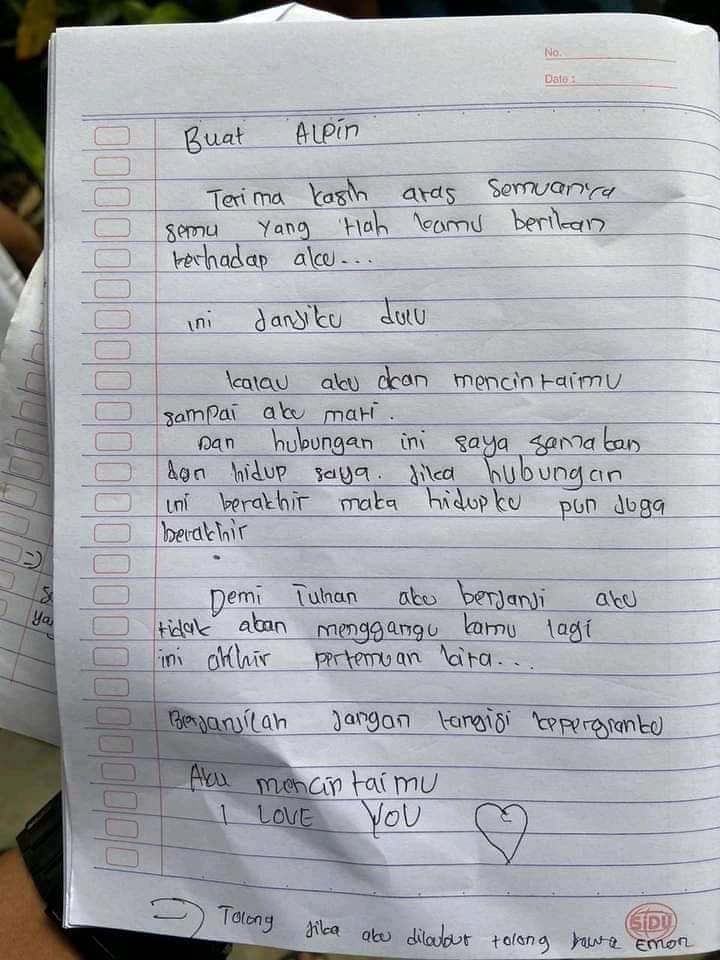 No.
Date :
Buat ALPin
Terima kasih atas semuanya
semu yang tlah kamu berikan
terhadap aku...
ini janjiku dulu
kalau aku akan mencintaimu
sampai aku mati.
Dan hubungan ini saya samakan
dgn hidup saya. Jika hubungan
ini berakhir maka hidupku pun juga
berakhir
Demi Tuhan aku berjanji aku
tidak akan menggangu kamu lagi
ini akhir pertemuan kita...
Berjanjilah jangan tangisi kepergianku
Aku mencintaimu
I LOVE YOU
Tolong jika aku dikubur tolong bawa EMON
SiDU
=)
Ya